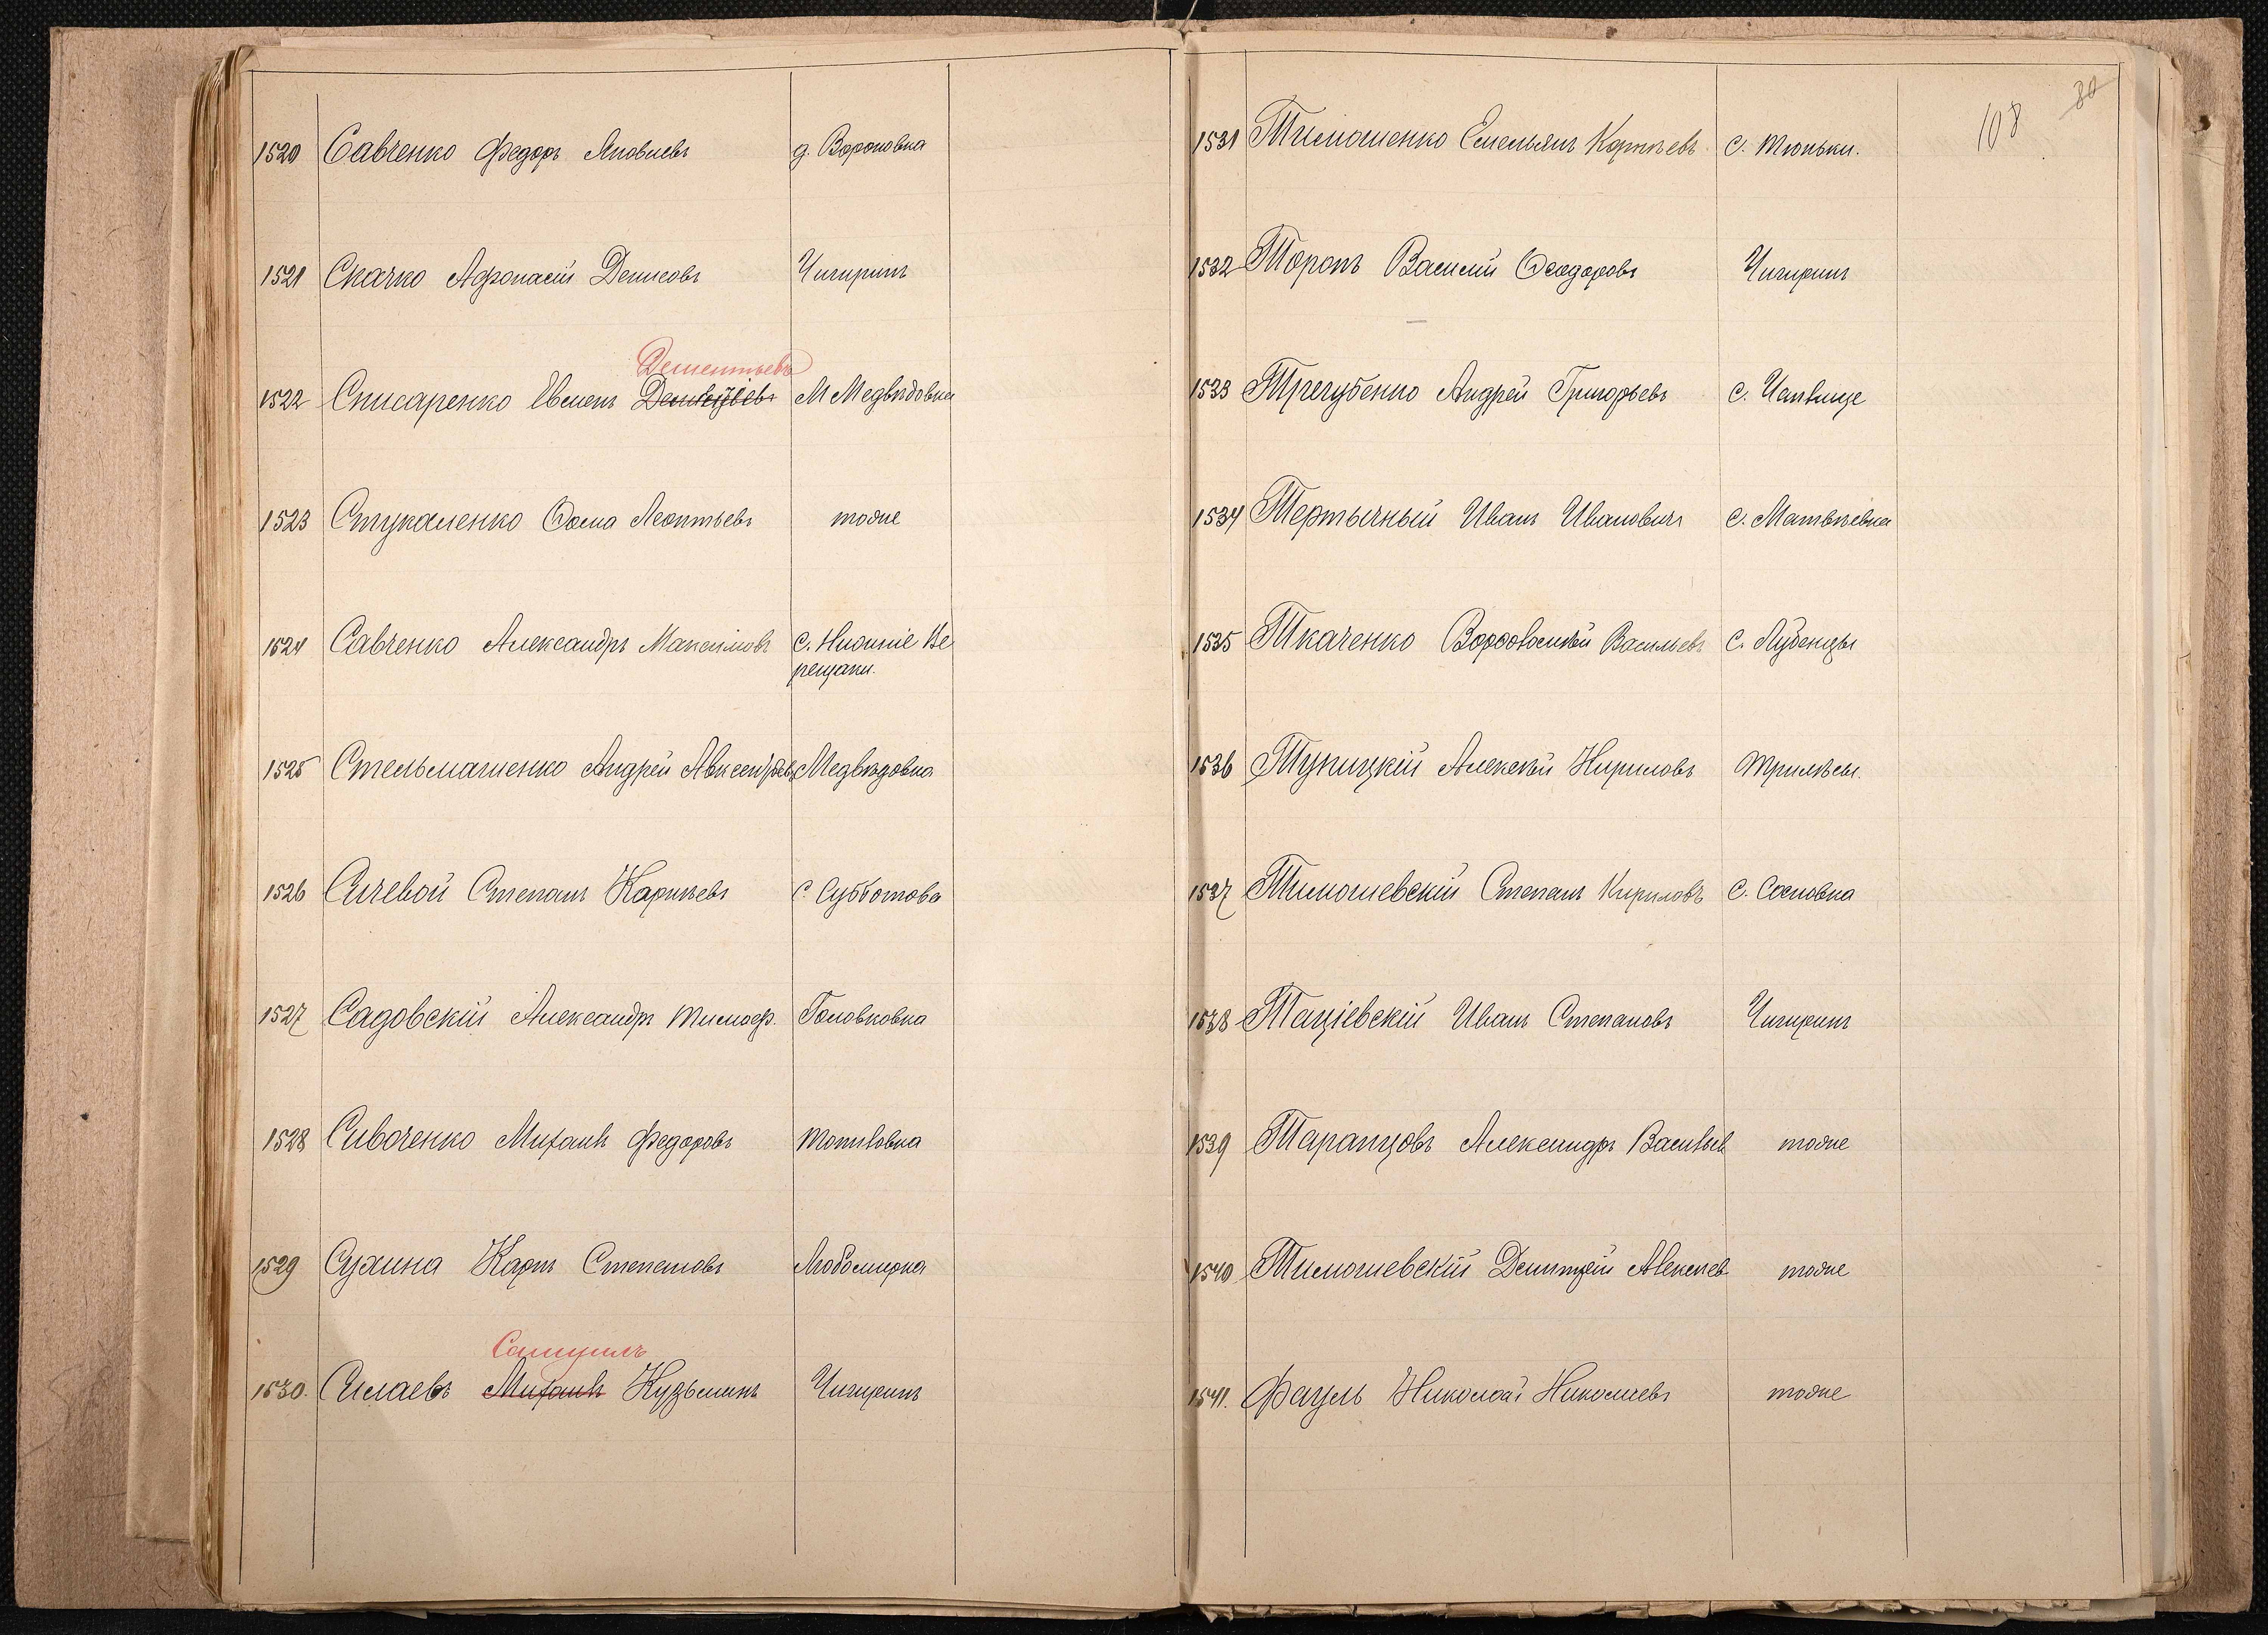 1520 Савченко Федоръ Яковлевъ д. Вороновка
1521 Скачко Афонасій Денисовъ Чигиринъ
Дементьевъ
1522 Списаренко Евменъ М Медвѣдовка
1523 Стукаленко Ѳома Леонтьевъ тоже
1524 Савченко Александръ Максимовъ с. Нижніе Ве
рещаки.
1525 Стельмашенко Андрей Авксентьевъ Медвѣдовка
1526 Сичевой Степанъ Карпѣевъ с. Субботова
1527 Садовскій Александръ Тимоф. Головковка
1528 Сивоченко Михаилъ Федоровъ
1529 Сухина Карпъ Степановъ Любомирка
Самуилъ
1530. Силаевъ Михаилъ Кузьминъ Чигиринъ
108
80
1531 Тимошенко Емельянъ Корнѣевъ с. Тюньки.
1532 Торопъ Василій Ѳеодоровъ Чигиринъ
1533 Трегубенко Андрей Григорьевъ с.
1534 Тертычный Иванъ Ивановичъ с. Матвѣевка
1535 Ткаченко Васильевъ с. Лубенцы
1536 Тупицкій Алексѣй Кириловъ Трилѣсы.
1537 Тимошевскій Степанъ Кириловъ с. Сосновка
1538 Таціевскій Иванъ Степановъ Чигиринъ
1539 Таранцовъ Александръ Васильев тоже
1540 Тимошевскій Дмитрій Алексѣев тоже
1541. Фауль Николай Николаевъ тоже